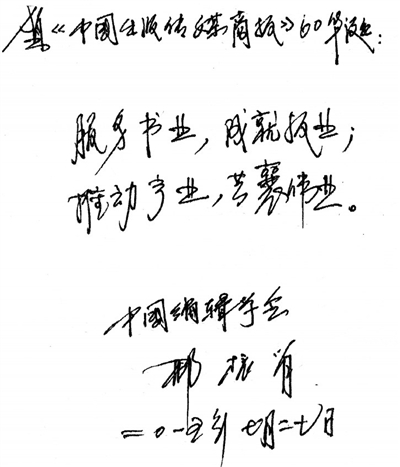 贺《中国出版传媒商报》20华诞：
服务书业，成就报业；
推动产业，共襄伟业。
中国编辑学会
郝振省
二0一五年七月二十七日